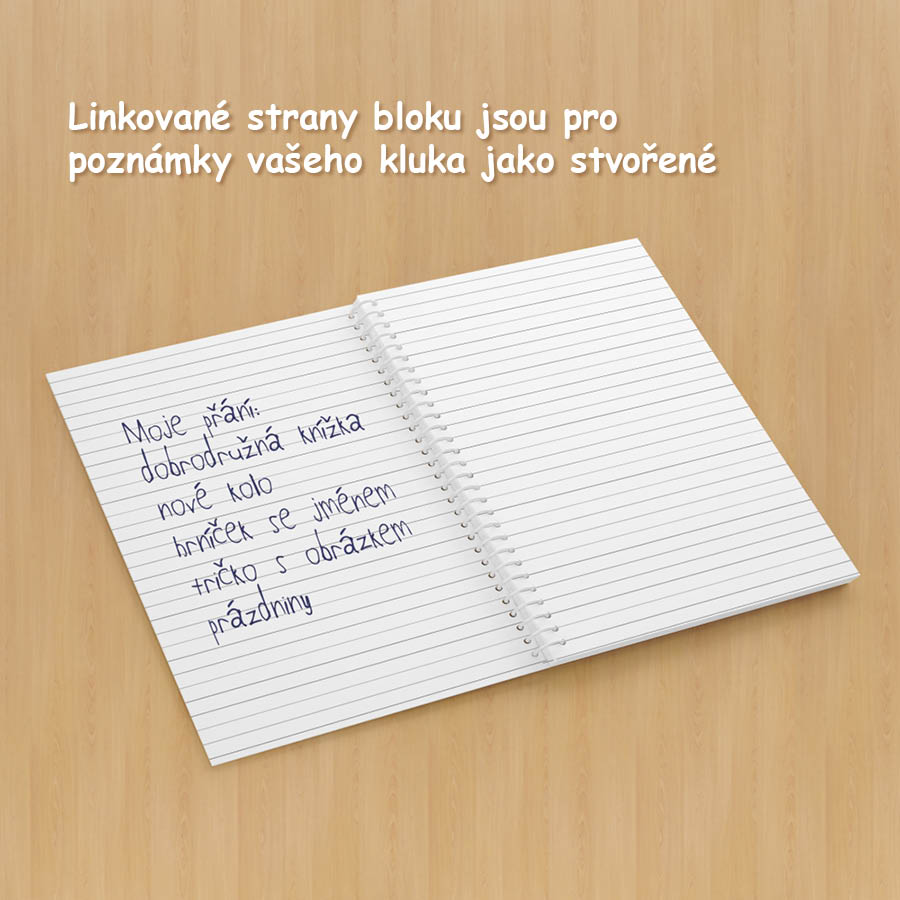 Linkované strany bloku jsou pro
poznámky vašeho kluka jako stvořené
Moje přání:
dobrodružná knížka
nové kolo
hrníček se jménem
tričko s obrázkem
prázdniny